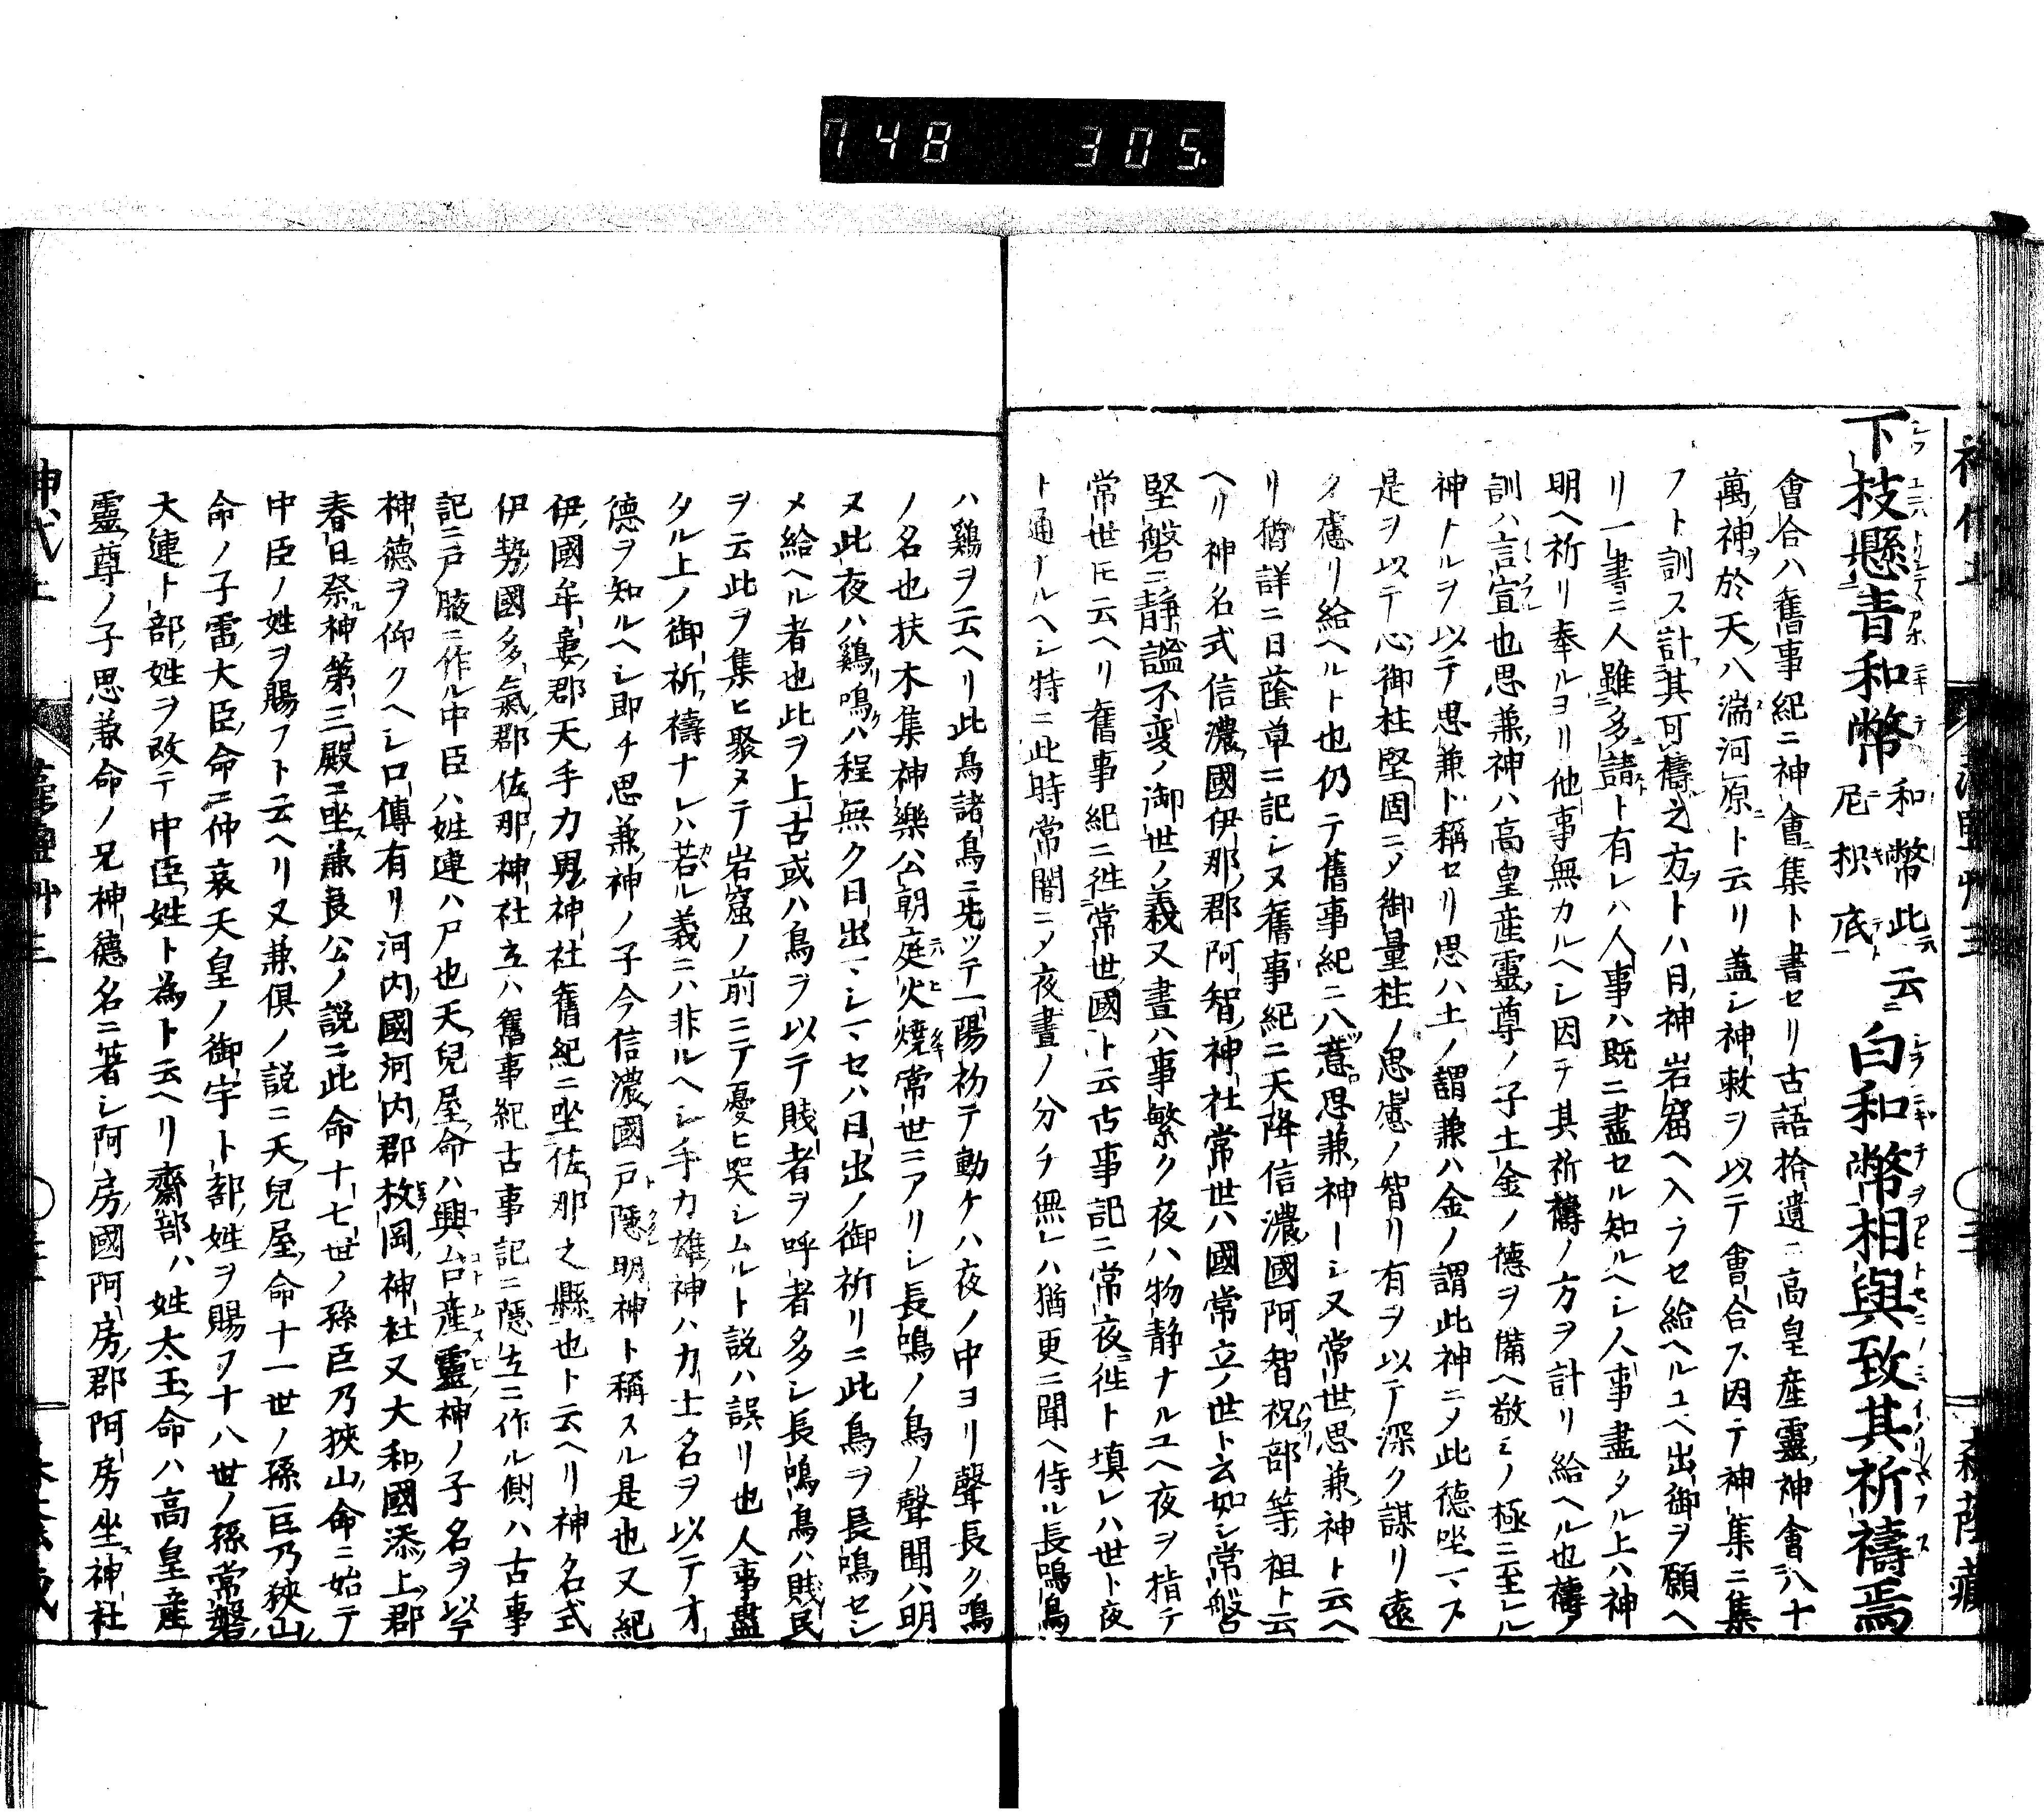 748 305.
下枝懸青和幣和幣此云尼枳底白和幣相與致其祈禱焉
會合ハ舊事紀ニ神會集ト書セリ古語拾遺ニ高皇産靈神會八十
萬神於天八湍河原ト云リ蓋シ神敕ヲ以テ會合ス因テ神集ニ集
フト訓ス計其可禱之方トハ日神岩窟ヘ入ラセ給ヘルユヘ出御ヲ願ヘ
リ一書ニ人雖多請ト有レハ人事ハ既ニ盡セル知ルヘシ人事盡タル上ハ神
明ヘ祈リ奉ルヨリ他事無カルヘシ因テ其祈禱ノ方ヲ計リ給ヘル也禱ノ
訓ハ言宣也思兼神ハ高皇産靈尊ノ子土金ノ德ヲ備ヘ敬ミノ極ニ至レル
神トルヲ以テ思兼ト稱セリ思ハ土ノ謂兼ハ金ノ謂此神ニメ此德坐マス
是ヲ以テ心御柱堅固ニメ御量柱ノ思慮ノ智リ有ヲ以テ深ク謀リ遠
ク慮リ給ヘルト也仍テ舊事紀ニ八意思兼神ーシ又常世思兼神ト云ヘ
リ猶詳ニ日蔭草ニ記シヌ舊事紀ニ天降信濃國阿智祝部等祖ト云
ヘリ神名式信濃國伊那郡阿智神社常世ハ國常立ノ世ト云如シ常磐
堅磐ニ靜謐不変ノ御世ノ義又晝ハ事繁ク夜ハ物静ナルユヘ夜ヲ指テ
常世モ云ヘリ舊事紀ニ徃常世國ト云古事記ニ常夜徃ト填レハ世ト夜
ト通ナルヘシ特ニ此時常闇ニメ夜晝ノ分チ無レハ猶更ニ聞ヘ侍ル長鳴鳥
ハ鷄ヲ云ヘリ此鳥諸鳥ニ先ッテ一陽初テ動ケハ夜ノ中ヨリ聲長ク鳴
ノ名也扶木集神樂ハ公朝庭火燒常世ニアリシ長鳴ノ鳥ノ聲聞ハ明
ヌ此夜ハ鷄鳴ハ程無ク日出マシマセハ日出ノ御祈リニ此鳥ヲ長鳴セシ
メ給ヘル者也此ヲ上古或ハ鳥ヲ以テ賤者ヲ呼者多シ長鳴鳥ハ賤民
ヲ云此ヲ集ヒ聚メテ岩窟ノ前ニテ憂ヒ哭シムルト説ハ誤リ也人事盡
タル上ノ御祈禱ナレハ若ル義ニハ非ルヘシ手力雄神ハ力士名ヲ以テオ
德ヲ知ルヘシ即チ思兼神ノ子今信濃國戸隱明神ト稱スル是也又紀
伊國牟婁郡天手力男神社舊紀ニ坐佐那之縣也ト云ヘリ神名式
伊勢國多氣郡佐那神社立ハ舊事紀古事記ニ隱立ニ作ル側ハ古事
記ニ戸腋ニ作ル中臣ハ姓連ハ尸也天兒屋命ハ興台産靈神ノ子名ヲ以テ
神德ヲ仰クヘシ口傳有リ河内國河内郡枚岡神社又大和國添上郡
春日祭神第三殿ニ坐ス兼良公ノ説ニ此命十七世ノ孫巨乃狹山命ニ始テ
中臣ノ姓ヲ賜フト云ヘリ又兼倶ノ説ニ天兒屋命十一世ノ孫巨乃狹山
命ノ子雷大臣命ニ仲哀天皇ノ御宇卜部姓ヲ賜フ十八世ノ孫常磐
大連卜部姓ヲ改テ中臣姓ト為ト云ヘリ齋部ハ姓太玉命ハ高皇産
靈尊ノ子思兼命ノ兄神德名ニ著シ阿房國阿房郡阿房坐神社